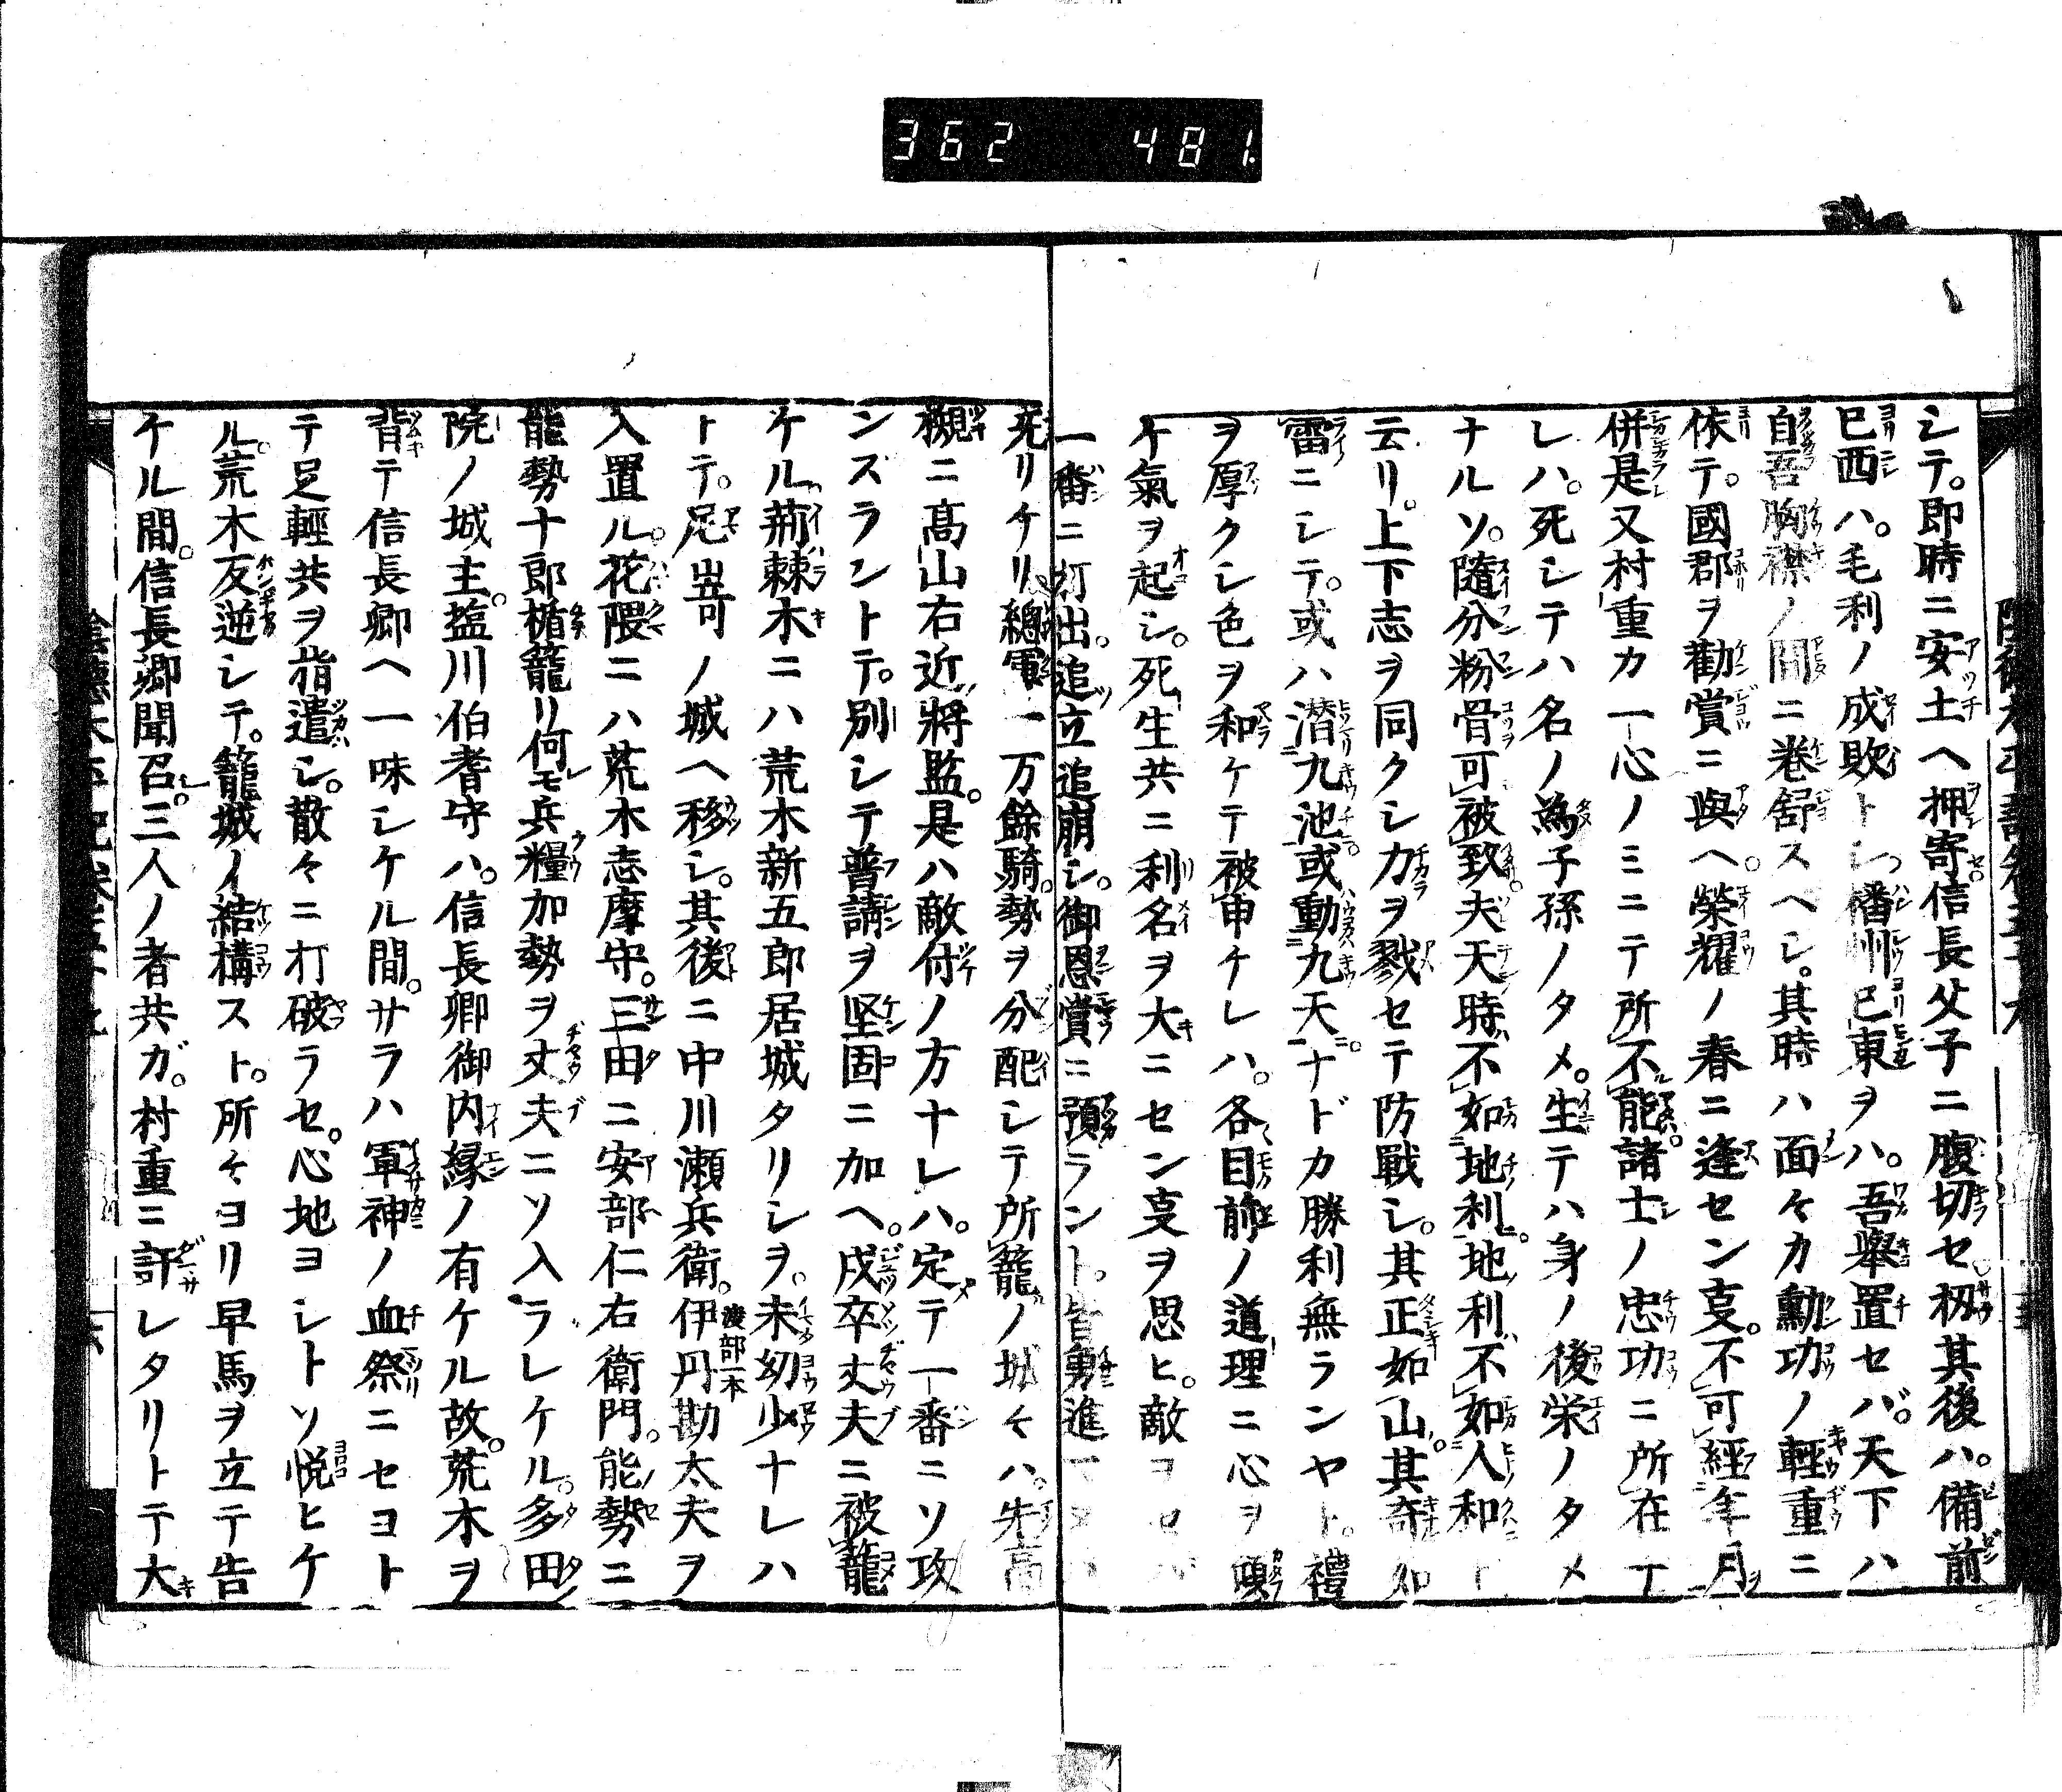 362 481.
シテ。即時ニ安土ヘ押寄信長父子ニ腹切セ扨其後ハ。備前
已西ハ。毛利ノ成敗トシ。幡州已東ヲハ。吾擧置セバ。天下ハ
自吾胸襟ノ間ニ巻舒スヘシ。其時ハ面々カ勳功ノ輕重ニ
依テ。國郡ヲ勸賞ニ與ヘ。榮耀ノ春ニ逢セン㕝。不可經年月
併是又村重カ一心ノミニテ所不能。諸士ノ忠功ニ所在丁
レハ。死シテハ名ノ爲子孫ノタメ。生テハ身ノ後栄ノタメ
ナルソ。隨分粉骨可被致夫天時不如地利。地利不如人和ト
云リ。上下志ヲ同クシ力ヲ戮セテ防戰シ。其正如山。其奇如
雷ニシテ。或ハ潛九池。或動九天。ナドカ勝利無ランヤト。禮
ヲ厚クシ色ヲ和ケテ被申ケレハ。各目前ノ道理ニ心ヲ
ケ氣ヲ起シ。死生共ニ利名ヲ大ニセン㕝ヲ思ヒ。敵ヨセ
一番ニ打出。追立追崩シ。御恩賞ニ預ラント。皆勇進
死リケリ總軍一万餘騎。勢ヲ分配シテ所籠ノ城々ハ。先高
槻ニ髙山右近將監。是ハ敵付ノ方ナレハ。定テ一番ニソ攻
ンズラントテ。別シテ普請ヲ堅固ニ加ヘ。戍卒丈夫ニ被籠
ケル。荊棘木ニハ荒木新五郎居城タリシヲ。未幼少ナレハ
トテ。尼﨑ノ城ヘ移シ。其後ニ中川瀬兵衛。渡部一本伊丹勘太夫ヲ
入置ル。花隈ニハ荒木志摩守。三田ニ安部仁右衛門。能勢ニ
能勢十郎楯籠リ何モ兵糧加勢ヲ丈夫ニソ入ラレケル。多田
院ノ城主。塩川伯耆守ハ。信長卿御内縁ノ有ケル故。荒木ヲ
背テ信長卿ヘ一味シケル間。サラハ軍神ノ血祭ニセヨト
テ足輕共ヲ指遣シ。散々ニ打破ラセ。心地ヨシトソ悦ヒケ
ル。荒木反逆シテ。籠城ノ結構スト。所々ヨリ早馬ヲ立テ告
ケル間。信長卿聞召。三人ノ者共ガ。村重ニ訐レタリトテ大